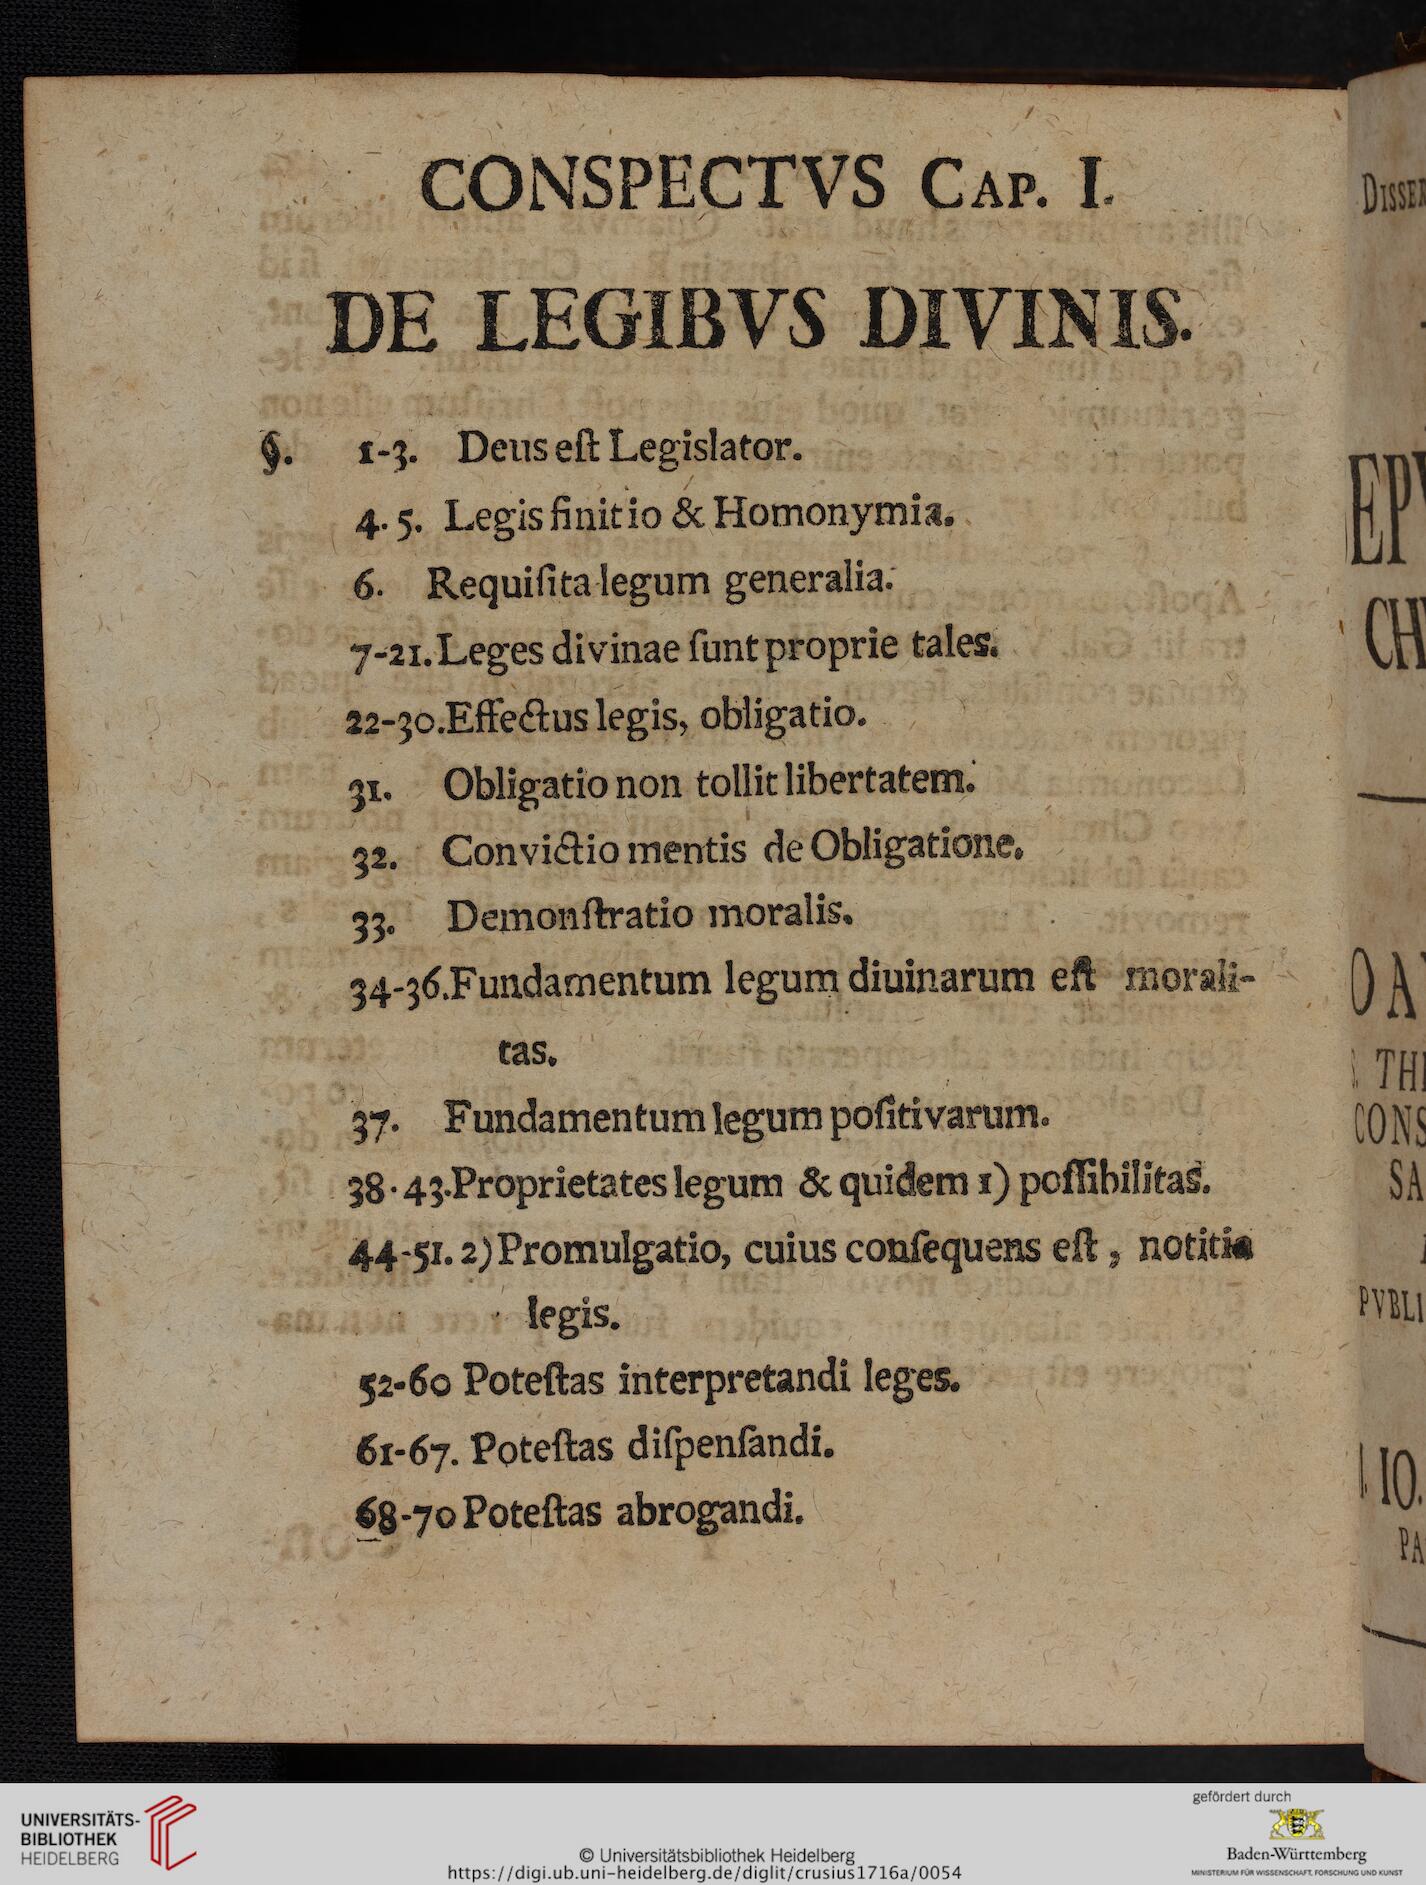 CONSPECTVS CAP. I.
DE LEGIBVS DIVINIS.
§. 1-3. Deus eſt Legislator.
4. 5. Legis finitio & Homonymia.
6. Requiſita legum generalia.
7-21. Leges divinae ſunt proprie tales.
22-30. Effectus legis, obligatio.
31. Obligatio non tollit libertatem.
32. Convictio mentis de Obligatione.
33. Demonſtratio moralis.
34-36. Fundamentum legum diuinarum eſt morali-
tas.
37. Fundamentum legum poſitivarum.
38. 43. Proprietates legum & quidem 1) poſſibilitas.
44-51. 2) Promulgatio, cuius conſequens eſt, notitia
legis.
52-60 Poteſtas interpretandi leges.
61-67. Poteſtas diſpenſandi.
68-70 Poteſtas abrogandi.
DISSER
EPV
CH
OA
TH
CONS
SA
PVBLI
IO.
PA
UNIVERSITÄTS-
BIBLIOTHEK
HEIDELBERG
© Universitätsbibliothek Heidelberg
https://digi.ub.uni-heidelberg.de/diglit/crusius1716a/0054
gefördert durch
Baden-Württemberg
MINISTERIUM FÜR WISSENSCHAFT, FORSCHUNG UND KUNST